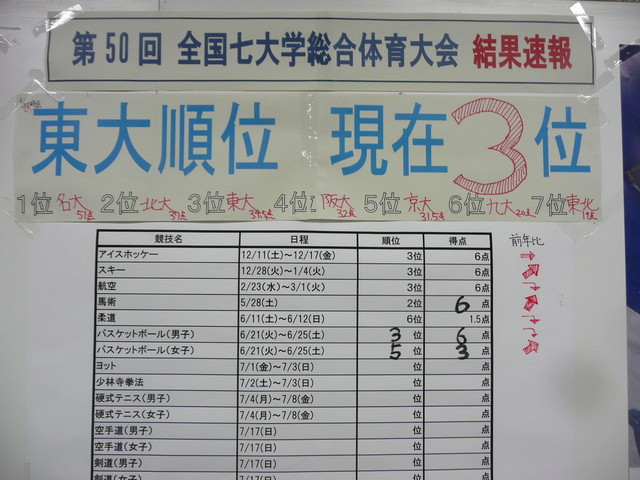 第50回 全国七大学総合体育大会 結果速報
東大順位 現在3位
1位 名大 2位 北大 3位 東大 4位 阪大 5位 京大 6位 九大 7位 東北
51点 37点 34.5点 32点 31.5点
競技名 日程 順位 得点 前年比
アイスホッケー 12/11(土)~12/17(金) 3位 6点
スキー 12/28(火)~1/4(火) 3位 6点
航空 2/23(水)~3/1(火) 3位 6点
馬術 5/28(土) 2位 6点
柔道 6/11(土)~6/12(日) 6位 1.5点
バスケットボール(男子) 6/21(火)~6/25(土) 3位 6点
バスケットボール(女子) 6/21(火)~6/25(土) 5位 3点
ヨット 7/1(金)~7/3(日) 位 点
少林寺拳法 7/2(土)~7/3(日) 位 点
硬式テニス(男子) 7/4(月)~7/8(金) 位 点
硬式テニス(女子) 7/4(月)~7/8(金) 位 点
空手道(男子) 7/17(日) 位 点
空手道(女子) 7/17(日) 位 点
剣道(男子) 7/17(日) 位 点
剣道(女子) 7/17(日) 位 点